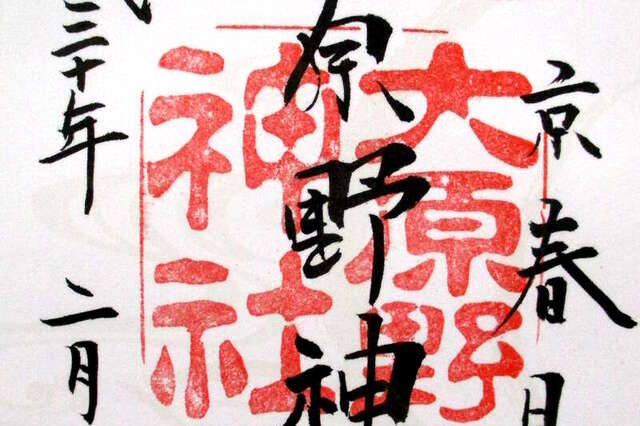 京春日
原野神
三十年 二月
大原野
神社